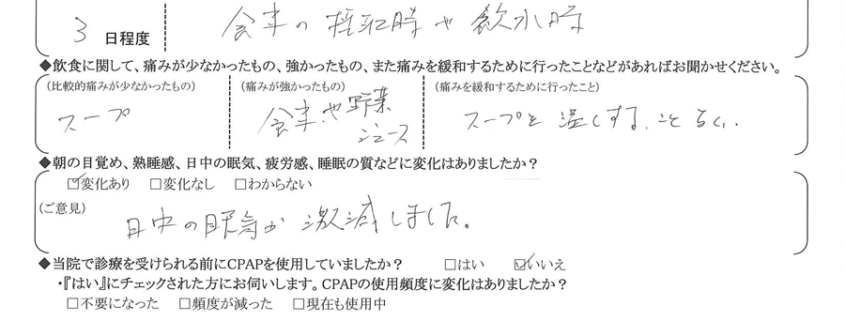 3 日程度 食事の摂取時や飲水時
◆飲食に関して、痛みが少なかったもの、強かったもの、また痛みを緩和するために行ったことなどがあればお聞かせください。
(比較的痛みが少なかったもの) (痛みが強かったもの) (痛みを緩和するために行ったこと)
スープ 食事や野菜ジュース スープを温くすることくらい.
◆朝の目覚め、熟睡感、日中の眠気、疲労感、睡眠の質などに変化はありましたか?
☑変化あり □変化なし □わからない
(ご意見)
日中の眠気が激減しました。
◆当院で診療を受けられる前にCPAPを使用していましたか? □はい ☑いいえ
・『はい』にチェックされた方にお伺いします。CPAPの使用頻度に変化はありましたか?
□不要になった □頻度が減った □現在も使用中